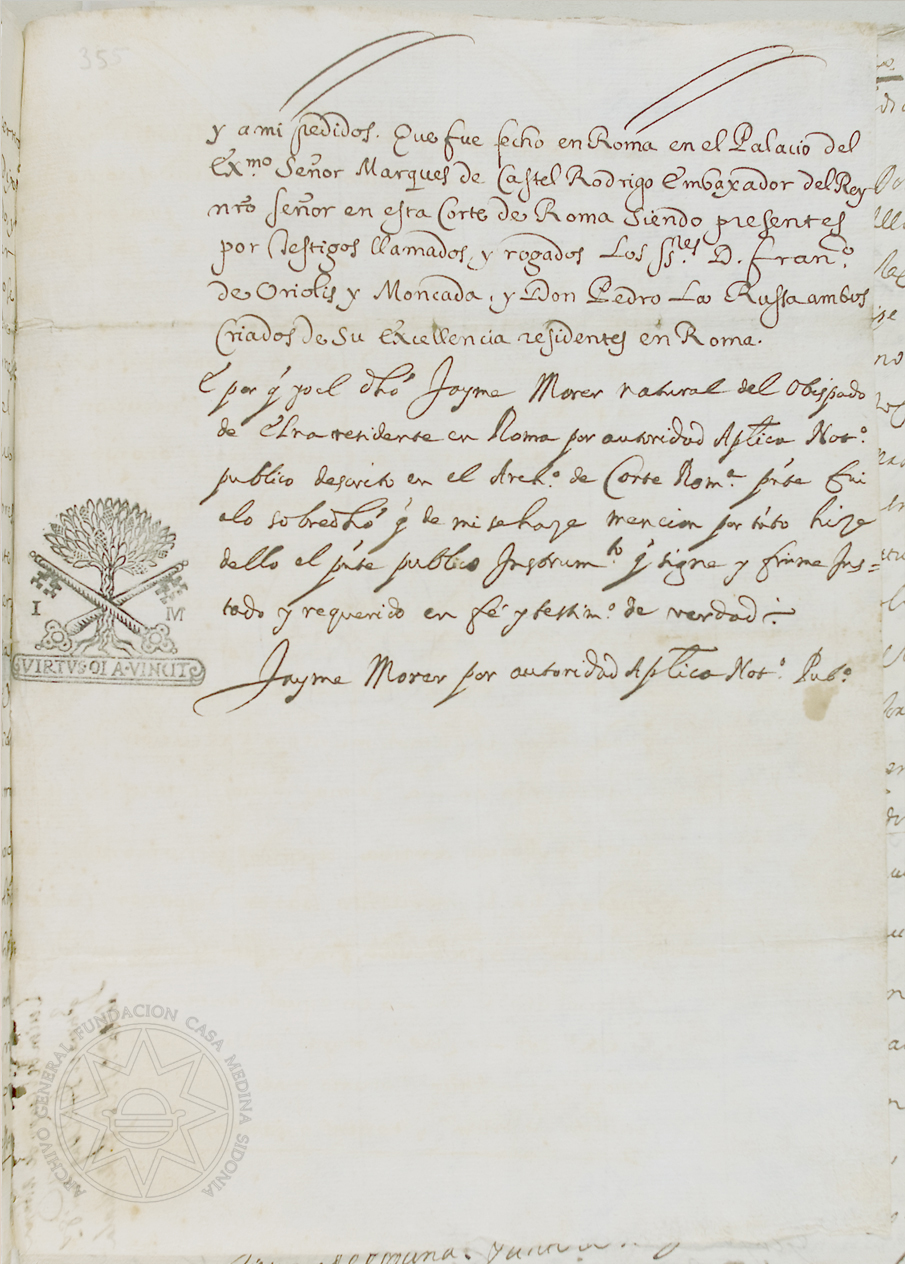 355
y a mi pedidos. Que fue fecho en Roma en el Palacio del
Exmo Señor Marques de Castel Rodrigo Embaxador del Rey
nro señor en esta Corte de Roma siendo presentes
por testigos llamados, y rogados Los SSres D. Franco.
de Oriolis y Moncada, y Don Pedro La Russa ambos
Criados de Su Excellencia residentes en Roma.
E por q yo el dho Jayme Morer natural del Obispado
de Elna residente en Roma por autoridad Aptica Noto.
publico descrito en el Archo. de Corte Roma. pnte fui
a lo sobredho q de mi se haze mencion por tnto hize
dello el pnte publico Instrumto. q signe y firme Ins=
tado y requerido en fé y testimo. de verdad.
I M
VIRTVS OIA VINCIT
Jayme Morer por autoridad Aptica Noto. Pubo.
ARCHIVO GENERAL FUNDACION CASA MEDINA SIDONIA